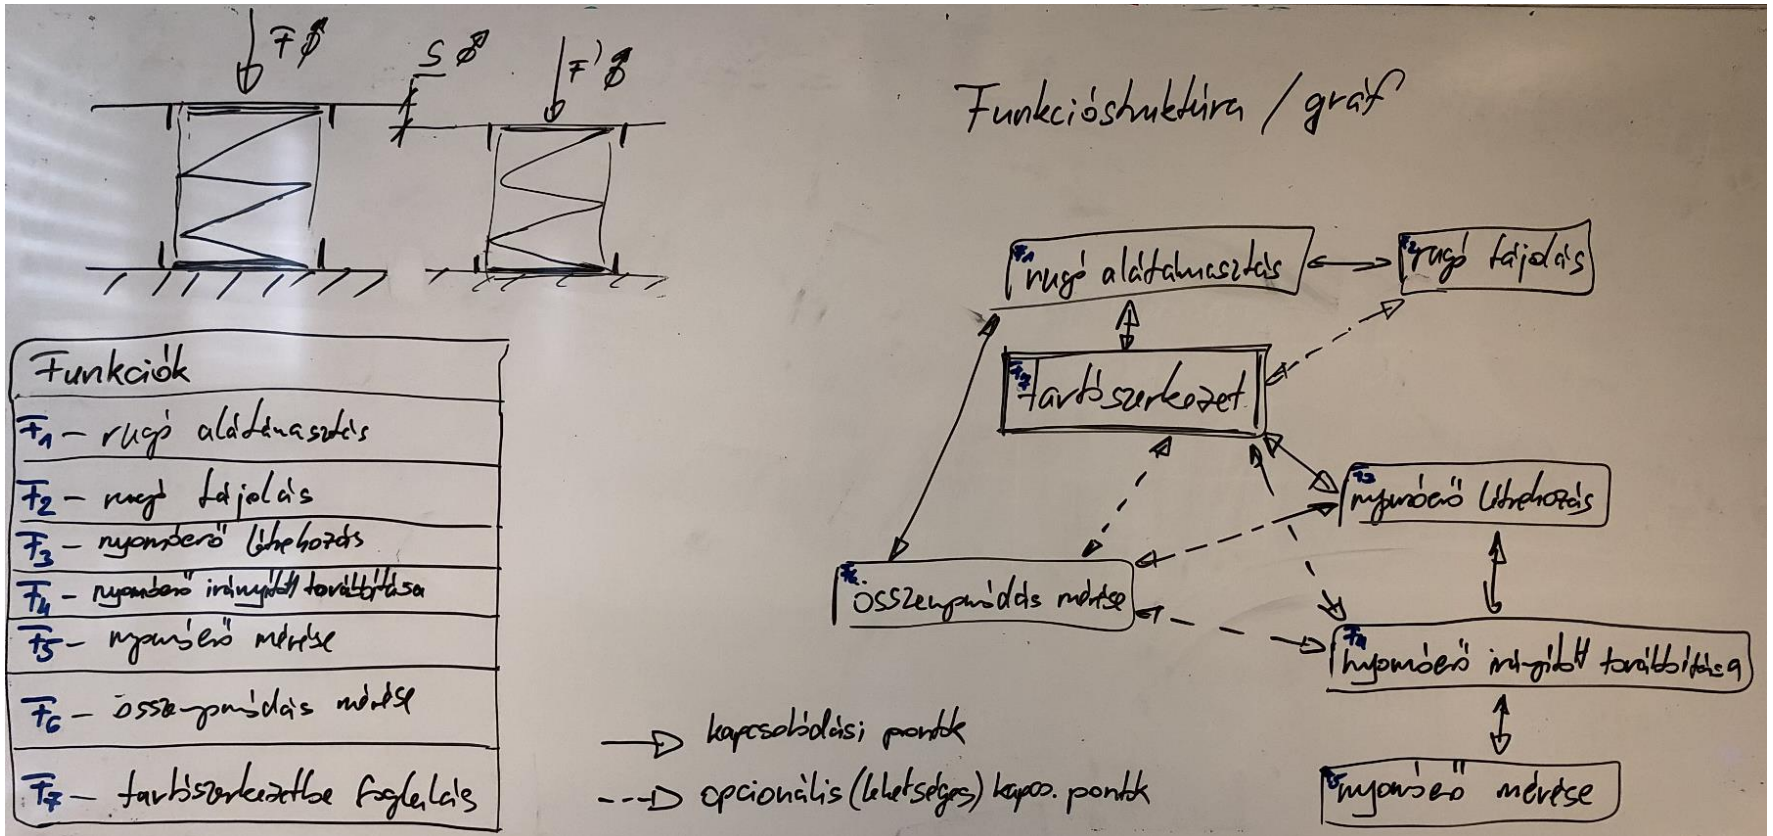 F
S
F'
Funkcióstruktúra / gráf
Funkciók
F1 – rugó alátámasztás
F2 – rugó tájolás
F3 – nyomóerő létrehozás
F4 – nyomóerő irányított továbbítása
F5 – nyomóerő mérése
F6 – összenyomódás mérése
F7 – tartószerkezetbe foglalás
F1 rugó alátámasztás
F2 rugó tájolás
F7 tartószerkezet
F3 nyomóerő létrehozás
F6 összenyomódás mérése
F4 nyomóerő irányított továbbítása
F5 nyomóerő mérése
kapcsolódási pontok
opcionális (lehetséges) kapcs. pontok